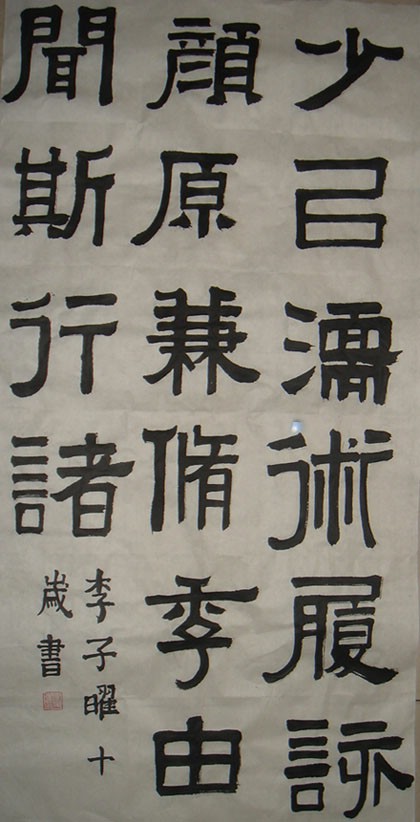 少㠯濡術履該
顏原兼脩季由
聞斯行諸
李子曜十
歲書